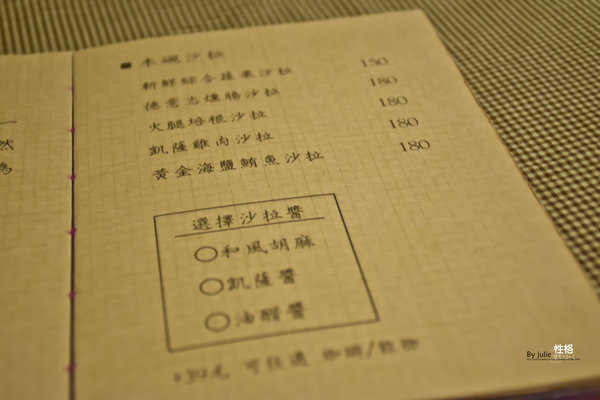 然
為
■ 木碗沙拉
新鮮綜合蔬果沙拉 150
德意志燻腸沙拉 180
火腿培根沙拉 180
凱薩雞肉沙拉 180
黃金海鹽鮪魚沙拉 180
選擇沙拉醬
○和風胡麻
○凱薩醬
○油醋醬
+39元 可任選 咖啡/穀物
By julie 性格